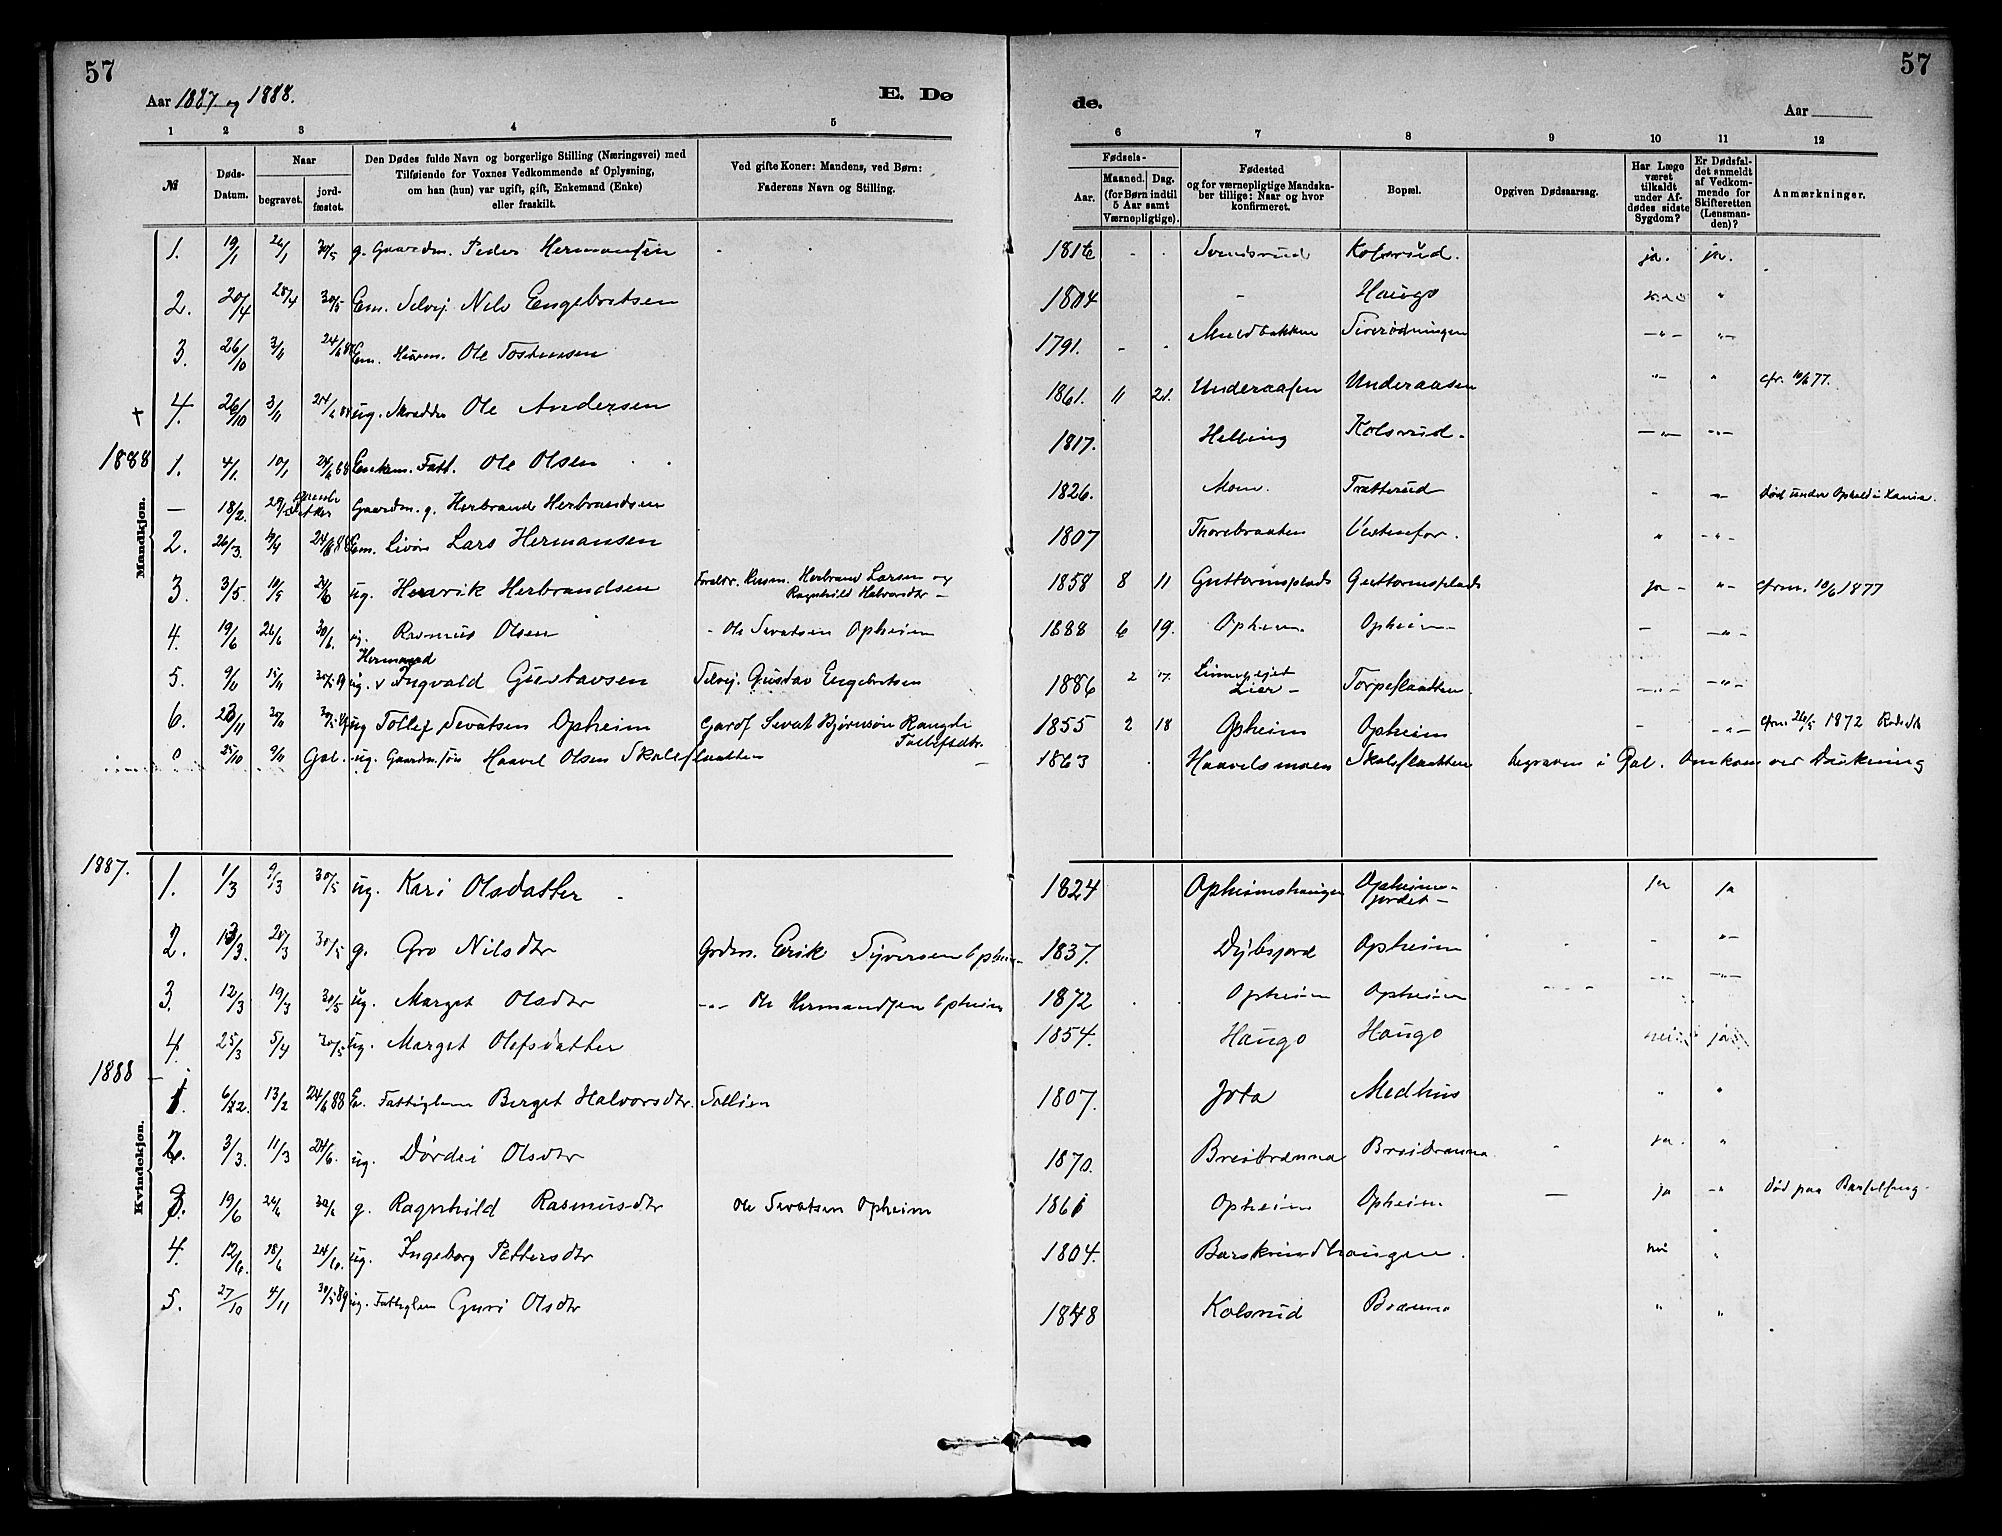 57
57
Aar 1887 og 1888.
E. Dø
de.
Aar
1 2 3 4 5 6 7 8 9 10 11 12
№
Døds-Datum.
Naar
begravet.
jord-fæstet.
Den Dødes fulde Navn og borgerlige Stilling (Næringsvei) med
Tilføiende for Voxnes Vedkommende af Oplysning,
om han (hun) var ugift, gift, Enkemand (Enke)
eller fraskilt.
Ved gifte Koner: Mandens, ved Børn:
Faderens Navn og Stilling.
Fødsels-
Aar.
Maaned. Dag.
(for Børn indtil
5 Aar samt
Værnepligtige).
Fødested
og for værnepligtige Mandska-
ber tillige: Naar og hvor
konfirmeret.
Bopæl.
Opgiven Dødsaarsag.
Har Læge
været
tilkaldt
under Af-
dødes sidste
Sygdom?
Er Dødsfal-
det anmeldt
af Vedkom-
mende for
Skifteretten
(Lensman-
den)?
Anmærkninger.
Mandkjøn.
1. 19/1 26/1 30/5 g. Gaardm. Peder Hermansen - 1816 - - Svensrud Kolsrud. ja. ja.
2. 20/4 28/4 30/5 Em. Selvej. Nils Engebretsen 1804 - Haugo "
3. 26/10 3/11 24/6 88 Em. Ole Tostensen 1791. - - Muldbakken -"- -"-
+ 4. 26/10 3/11 24/6 88 ug. Skrædder Ole Andersen 1861. 11 21. Underaasen Underaasen "- " cfr. 10/6 77.
1888 1. 4/1 10/1 24/6 88 Enkem. Fatt. Ole Olsen 1817. Helling Kolsrud. -"- -"-
- 18/2. Gaardm. g. Herbrand Herbrandsen 1826. Moen. Trætterud - -"- Død under Ophold i
2. 26/3. 4/4 24/6 88 Em. Lars Hermansen 1807 Thorebraaten Vestenfor. " -"-
3. 3/5. 10/5 24/6 ug. Henrik Herbrandsen Foreldr. Husm. Herbrand Larsen og
Ragnhild Halvorsdtr - 1858 8 11 Guttormsplads Guttormsplads ja - "- cfrm. 10/6 1877
4. 19/6 26/6 30/6. ug. Rasmus Olsen - Ole Sevatsen Opheim 1888 6 19. Opheim. Opheim - - -"-
Hermand
5. 9/11 15/11 30/5 89 ug. v Ingvald Gustavsen Selvej. Gustav Engebretsen 1886 2 Lier - Torpeslaatten. -"- -"-
6. 23/11 30/11 ug Tollef Sevatsen Opheim Gardf Sevat Bjørnsøn Rangdi
Tollefsdtr. 1855 2 18 Opheim Opheim - -"- cfrm. 24/5 1872
0 25/10 9/11 Gol. ug. Gaardm. søn Haavel Olsen Skoleslaatten - 1863 Haavelsmoen Skoleslaatten begraven i Gol. Omkom ved Drukning
Kvindekjøn.
1887. 1. 1/3 9/3 30/5 ug. Kari Olsdatter - 1824 Opheimshaugen Opheims-
jordet - ja ja
2. 13/3. 20/3 30/5 g. Gro Nilsdtr Grdm. Erik Syversen Opheim 1837. Opheim - "-
3. 12/3 19/3 30/5 ug. Marget Olsdtr -"- Ole Hermandsen Opheim 1872 Opheim Opheim - - - -"- -"-
4. 25/3 5/4 30/5 ug. Marget Olefsdatter 1854. Haugo Haugo nei ja
1888 - 1. 6/2. 13/2 24/6 88 E. Fattiglem Berget Halvorsdtr. Sollien 1807. Jota Medhus " "
2. 3/3. 11/3 24/6. ug. Dørdei Olsdtr 1870. Breibrænna Breibrænna - ja. "
3. 19/6 26/6 30/6 g. Ragnhild Rasmusdtr Ole Sevatsen Opheim 1861 Opheim Opheim - ja -"- død paa Barselseng -
4. 12/6. 18/6 24/6. ug. Ingeborg Pettersdtr 1804. Barskrindhaugen. nei "
5. 27/10 4/11 30/5 89 ug. Fattiglem Guri Olsdtr 1848 Kolsrud Brænna " "